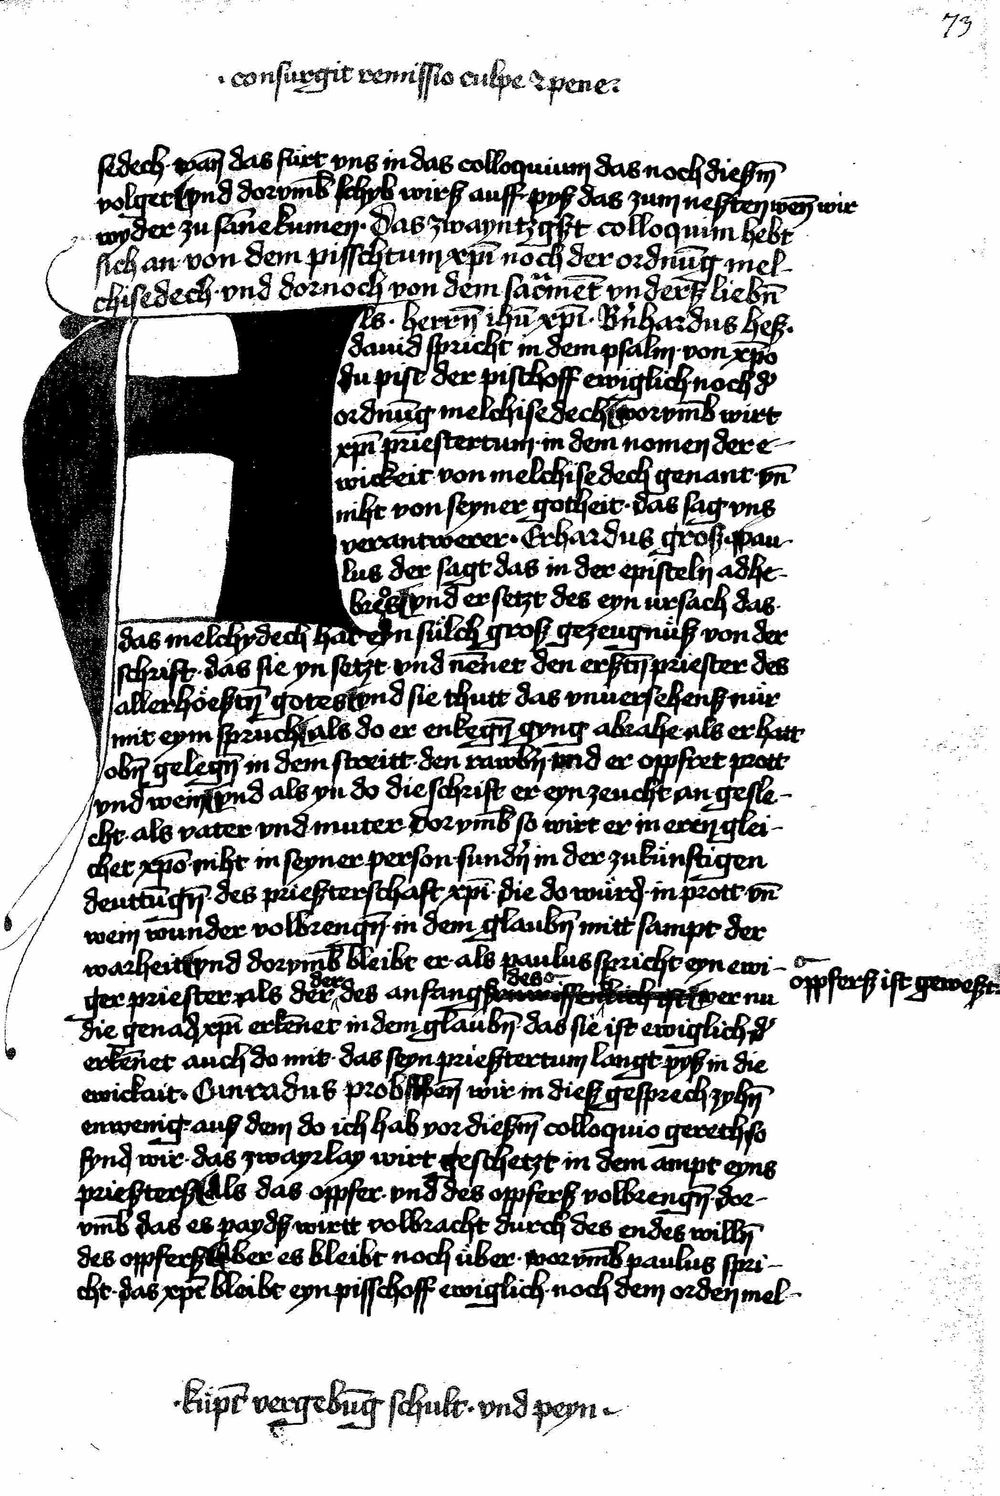 73
· consurgit remissio culpe ⁊ pene ·
sedech · wan̄ das fürt vns in das colloquium das noch dieß̄m
volget vnd dorvm̄b schyb wirß auff · pyß das zum neßten wen̄ wir
wyder zu sam̄e kumen · Das zwayntzgßt colloquim hebt
sich an · von dem pisschtum xp̄i noch der ordnūg mel-
chisedech · vnd dornoch von dem sacrament vnderß liebn̄
Als · herrn̄ ihū xp̄i · Bn̄hardus heß ·
dauid spricht in dem psalm · von xp̄o
du pist der pischoff ewiglich noch d̄
ordnūg melchisedech worvm̄b wirt
xp̄i priestertum · in dem nomen der e-
wickeit · von melchisedech genant · vn̄
niht von seyner gotheit · das sag vns
verantwerer · Erhardus groß · pau-
lus der sagt das in der episteln adhe-
breos vnd er setzt des eyn ursach das ·
das melchydech hat eyn sülch groß gezeugnüß von der
schrift · das sie yn setzt · vnd nēnet den erßtn̄ priester des
allerhöeßtn̄ gotes vnd sie thutt das vnuersehenß nür
mit eym spruch als do er enkegn̄ gyng abrahe · als er hatt
obn̄ gelegn̄ in dem streitt · den rawbn̄ · vnd er oppfret prott
vnd wein vnd als yn do die schrift er eyn zeucht · an gesle-
cht · als vater vnd muter · dorvm̄b so wirt er in eren glei-
chet xp̄o · niht in seyner person · sundn̄ in der zukünftigen
deuttūgn̄ · des prießterschaft xp̄i · die do würd · in prott · vn̄
wein wunder volbrengn̄ · in dem glaubn̄ mitt sampt der
warheit vnd dorvm̄b bleibt er · als paulus spricht eyn ewi-
ger priester · als der der des anfangß des oppferß ist geweßt · wer nu
die genad xp̄i erkēnet in dem glaubn̄ das sie ist ewiglich d̄
erkēnet auch do mit · das seyn prießtertum langt pyß in die
ewickait · Cunradus probst wen̄ wir in dieß gesprech zyhn̄
enwenig · auß dem do ich hab vor dieß̄m colloquio gereth so
synd wir · das zwayrlay wirt geschetzt in dem ampt eyns
prießterß Als das oppfer · vnd des oppferß volbrengn̄ · dor-
vm̄b das es paydß wirtt volbracht durch des endes willn̄
des oppferß Aber es bleibt noch über · worvm̄b paulus spri-
cht · das xp̄c bleibt eyn pisschoff ewiglich · noch dem orden mel-
· küpt vergebūg schult · vnd peyn ·